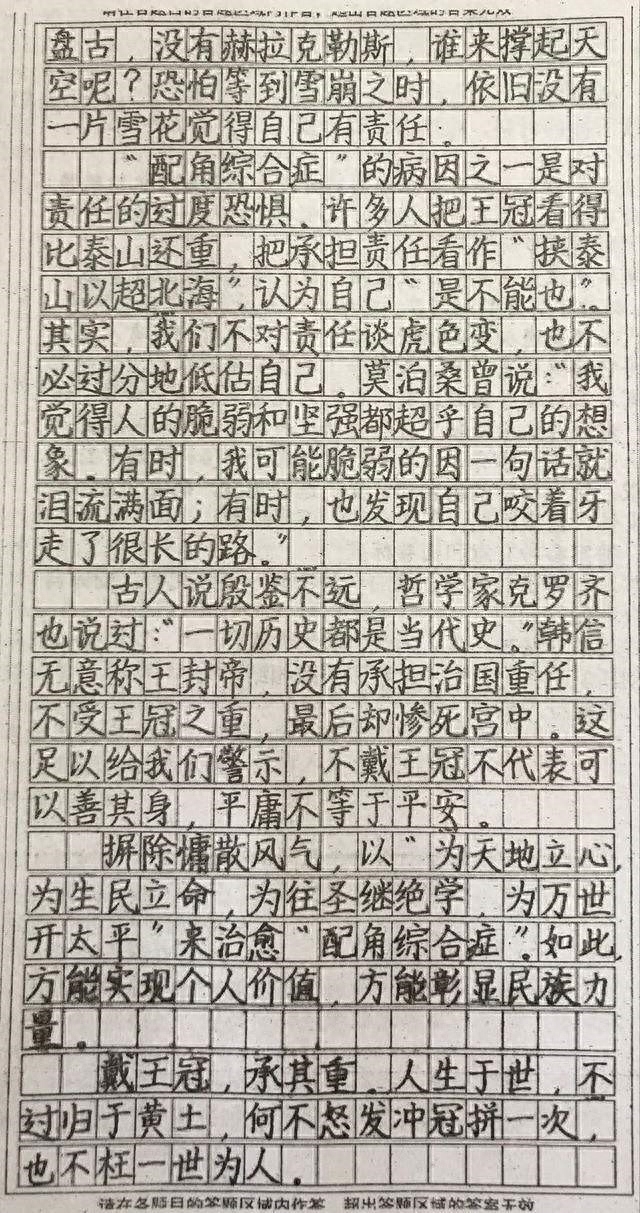 盘古，没有赫拉克勒斯，谁来撑起天
空呢？恐怕等到雪崩之时，依旧没有
一片雪花觉得自己有责任。
“配角综合症”的病因之一是对
责任的过度恐惧。许多人把王冠看得
比泰山还重，把承担责任看作“挟泰
山以超北海”，认为自己“是不能也”。
其实，我们不对责任谈虎色变，也不
必过分地低估自己。莫泊桑曾说：“我
觉得人的脆弱和坚强都超乎自己的想
象。有时，我可能脆弱的因一句话就
泪流满面；有时，也发现自己咬着牙
走了很长的路。”
古人说殷鉴不远，哲学家克罗齐
也说过：“一切历史都是当代史。”韩信
无意称王封帝，没有承担治国重任，
不受王冠之重，最后却惨死宫中。这
足以给我们警示，不戴王冠不代表可
以善其身，平庸不等于平安。
摒除慵散风气，以“为天地立心，
为生民立命，为往圣继绝学，为万世
开太平”来治愈“配角综合症”。如此，
方能实现个人价值，方能彰显民族力
量。
戴王冠，承其重。人生于世，不
过归于黄土，何不怒发冲冠拼一次，
也不枉一世为人。
请在各题目的答题区域内作答，超出答题区域的答案无效